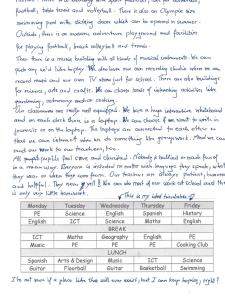 football, table tennis and volleyball. There is also an Olympic size
swimming pool with sliding doors which can be opened in summer.
Outside, there is an adventure playground and facilities
for playing football, beach volleyball and tennis.
Then there is a music building with all kinds of musical instruments. We can
pick any we'd like to play. We also have our own recording studio where we can
record music and our own TV show just for school. There are also buildings
for drama, arts and crafts. We can choose loads of interesting activities like
gardening, astronomy and cooking.
Our classrooms are really well equipped. We have a huge interactive whiteboard
and on each desk there is a laptop. We can choose if we want to write in
journals or on the laptop. The laptops are connected to each other so
that we can interact when we do something like groupwork. And we can
All pupils feel safe and cherished. Nobody is bullied or made fun of
in a mean way. Everyone is included no matter what language they speak, what
they wear or where they come from. Our teachers are always patient, honest
and helpful. They never yell! We can do most of our work at school and there
is only very little homework.
This is my ideal timetable:
Monday Tuesday Wednesday Thursday Friday
PE Science English Spanish History
English ICT Science Maths English
BREAK
ICT Maths Geography English PE
Music PE PE PE Cooking Club
LUNCH
Spanish Arts & Design Music ICT Science
Guitar Floorball Guitar Basketball Swimming
I'm not sure if a place like this will ever exist, but I can keep hoping, right?